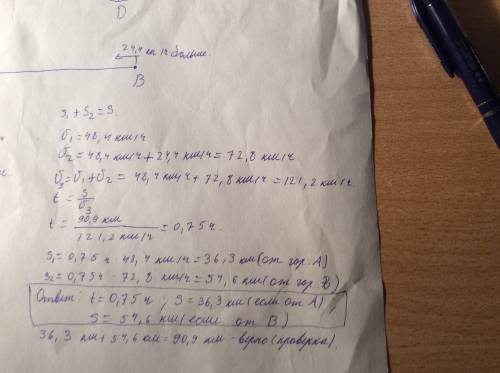 D
24,4 км/ч больше.
B
S₁ + S₂ = S.
υ₁ = 48,4 км/ч
υ₂ = 48,4 км/ч + 24,4 км/ч = 72,8 км/ч
υ₃ = υ₁ + υ₂ = 48,4 км/ч + 72,8 км/ч = 121,2 км/ч.
t = S/υ₃
t = 90,9 км / 121,2 км/ч = 0,75 ч.
S₁ = 0,75 ч · 48,4 км/ч = 36,3 км (от гор. А)
S₂ = 0,75 ч · 72,8 км/ч = 54,6 км (от гор. В)
Ответ: t = 0,75 ч ; S = 36,3 км (если от А)
S = 54,6 км (если от В)
36,3 км + 54,6 км = 90,9 км - верно (проверка).